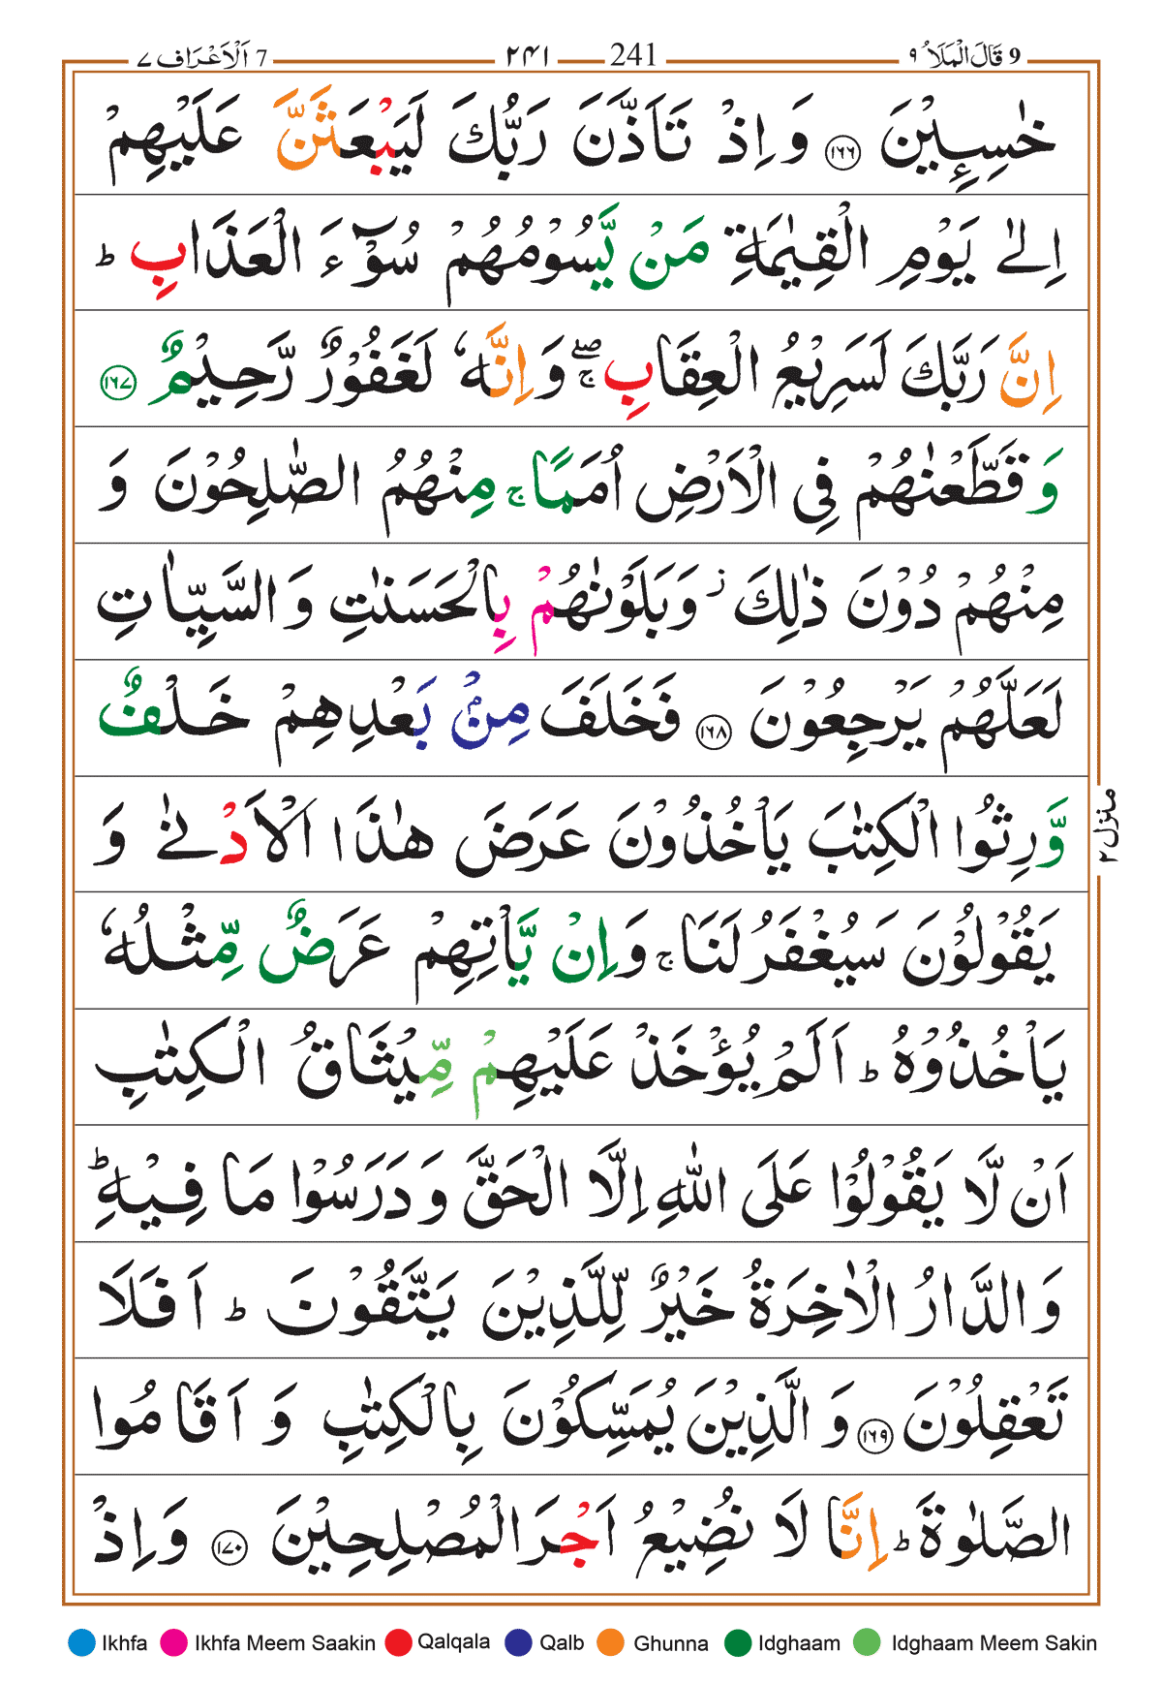 9 قَالَ الْمَلَاُ ٩ 241 ٢٤١ 7 اَلْاَعْرَاف ٧
خٰسِـِٕیْنَ ١٦٦ وَ اِذْ تَاَذَّنَ رَبُّكَ لَیَبْعَثَنَّ عَلَیْهِمْ
اِلٰى یَوْمِ الْقِیٰمَةِ مَنْ یَّسُوْمُهُمْ سُوْٓءَ الْعَذَابِ ؕ
اِنَّ رَبَّكَ لَسَرِیْعُ الْعِقَابِ ۖۚ وَ اِنَّهٗ لَغَفُوْرٌ رَّحِیْمٌ ١٦٧
وَ قَطَّعْنٰهُمْ فِی الْاَرْضِ اُمَمًا ۚ مِنْهُمُ الصّٰلِحُوْنَ وَ
مِنْهُمْ دُوْنَ ذٰلِكَ ؗ وَ بَلَوْنٰهُمْ بِالْحَسَنٰتِ وَ السَّیِّاٰتِ
لَعَلَّهُمْ یَرْجِعُوْنَ ١٦٨ فَخَلَفَ مِنْۢ بَعْدِهِمْ خَلْفٌ
وَّرِثُوا الْكِتٰبَ یَاْخُذُوْنَ عَرَضَ هٰذَا الْاَدْنٰى وَ
یَقُوْلُوْنَ سَیُغْفَرُ لَنَا ۚ وَ اِنْ یَّاْتِهِمْ عَرَضٌ مِّثْلُهٗ
یَاْخُذُوْهُ ؕ اَلَمْ یُؤْخَذْ عَلَیْهِمْ مِّیْثَاقُ الْكِتٰبِ
اَنْ لَّا یَقُوْلُوْا عَلَى اللّٰهِ اِلَّا الْحَقَّ وَ دَرَسُوْا مَا فِیْهِ ؕ
وَ الدَّارُ الْاٰخِرَةُ خَیْرٌ لِّلَّذِیْنَ یَتَّقُوْنَ ؕ اَفَلَا
تَعْقِلُوْنَ ١٦٩ وَ الَّذِیْنَ یُمَسِّكُوْنَ بِالْكِتٰبِ وَ اَقَامُوا
الصَّلٰوةَ ؕ اِنَّا لَا نُضِیْعُ اَجْرَ الْمُصْلِحِیْنَ ١٧٠ وَ اِذْ
منزل ٢
Ikhfa Ikhfa Meem Saakin Qalqala Qalb Ghunna Idghaam Idghaam Meem Sakin